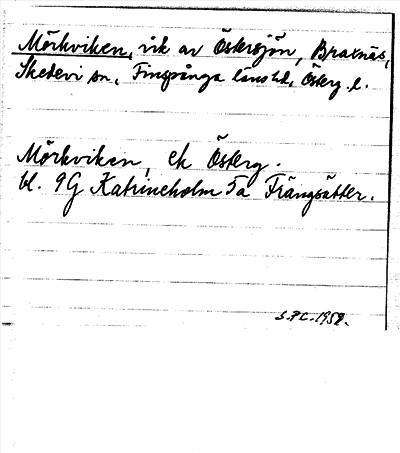 Mörkviken, vik av Östersjön, Braxnäs,
Skedevi sn, Finspånga länshd, Österg. l.
Mörkviken, ek Österg.
bl. 9G Katrineholm 5a Frängsätter.
S.P.C. 1959.